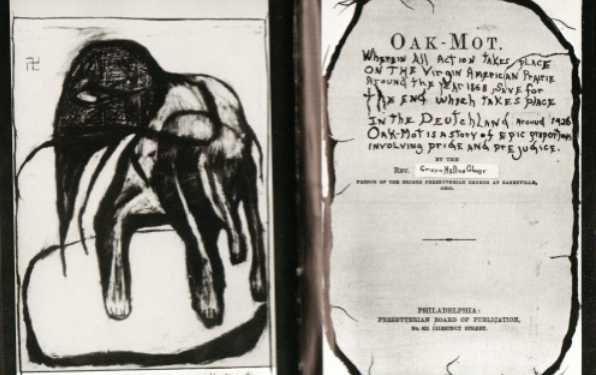 卍
OAK-MOT.
WHEREIN All ACTION TAKES PLACE
ON THE Virgin American Prairie
Around the YEAR 1868, SAVE for
The END which TAKES place
IN the DEUTCHLAND Around 1926
OAK-MOT IS A STORY of EPIC proportions
INVOLVING pride AND prejudice.
BY THE
REV.
PASTOR OF THE SECOND PRESBYTERIAN CHURCH AT ZANESVILLE,
OHIO.
PHILADELPHIA:
PRESBYTERIAN BOARD OF PUBLICATION,
No. 821 CHESTNUT STREET.